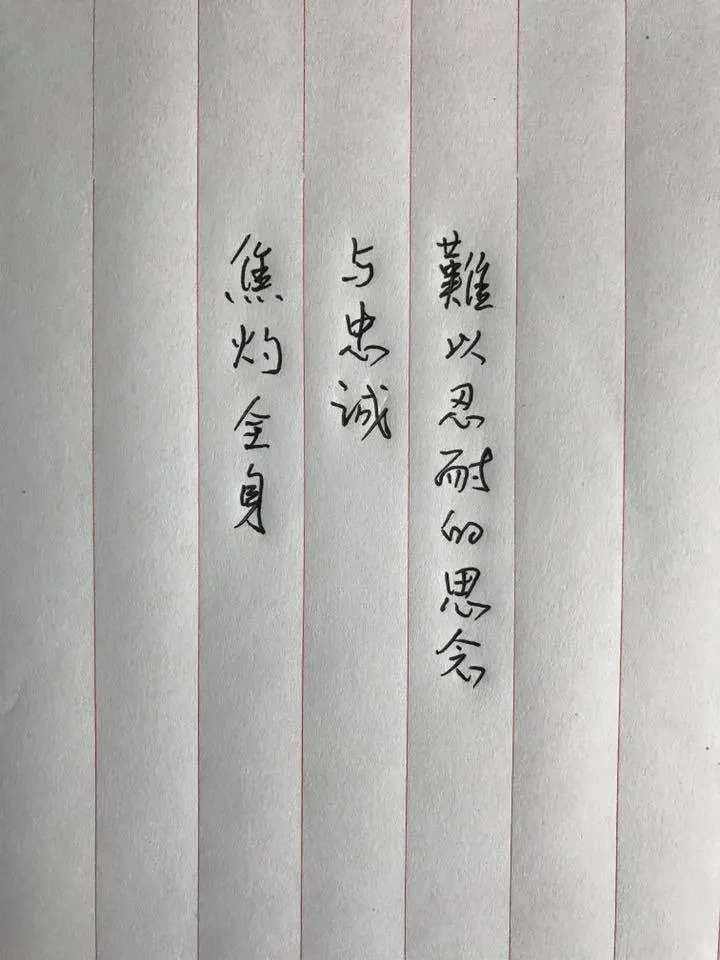 難以忍耐的思念
与忠诚
焦灼全身